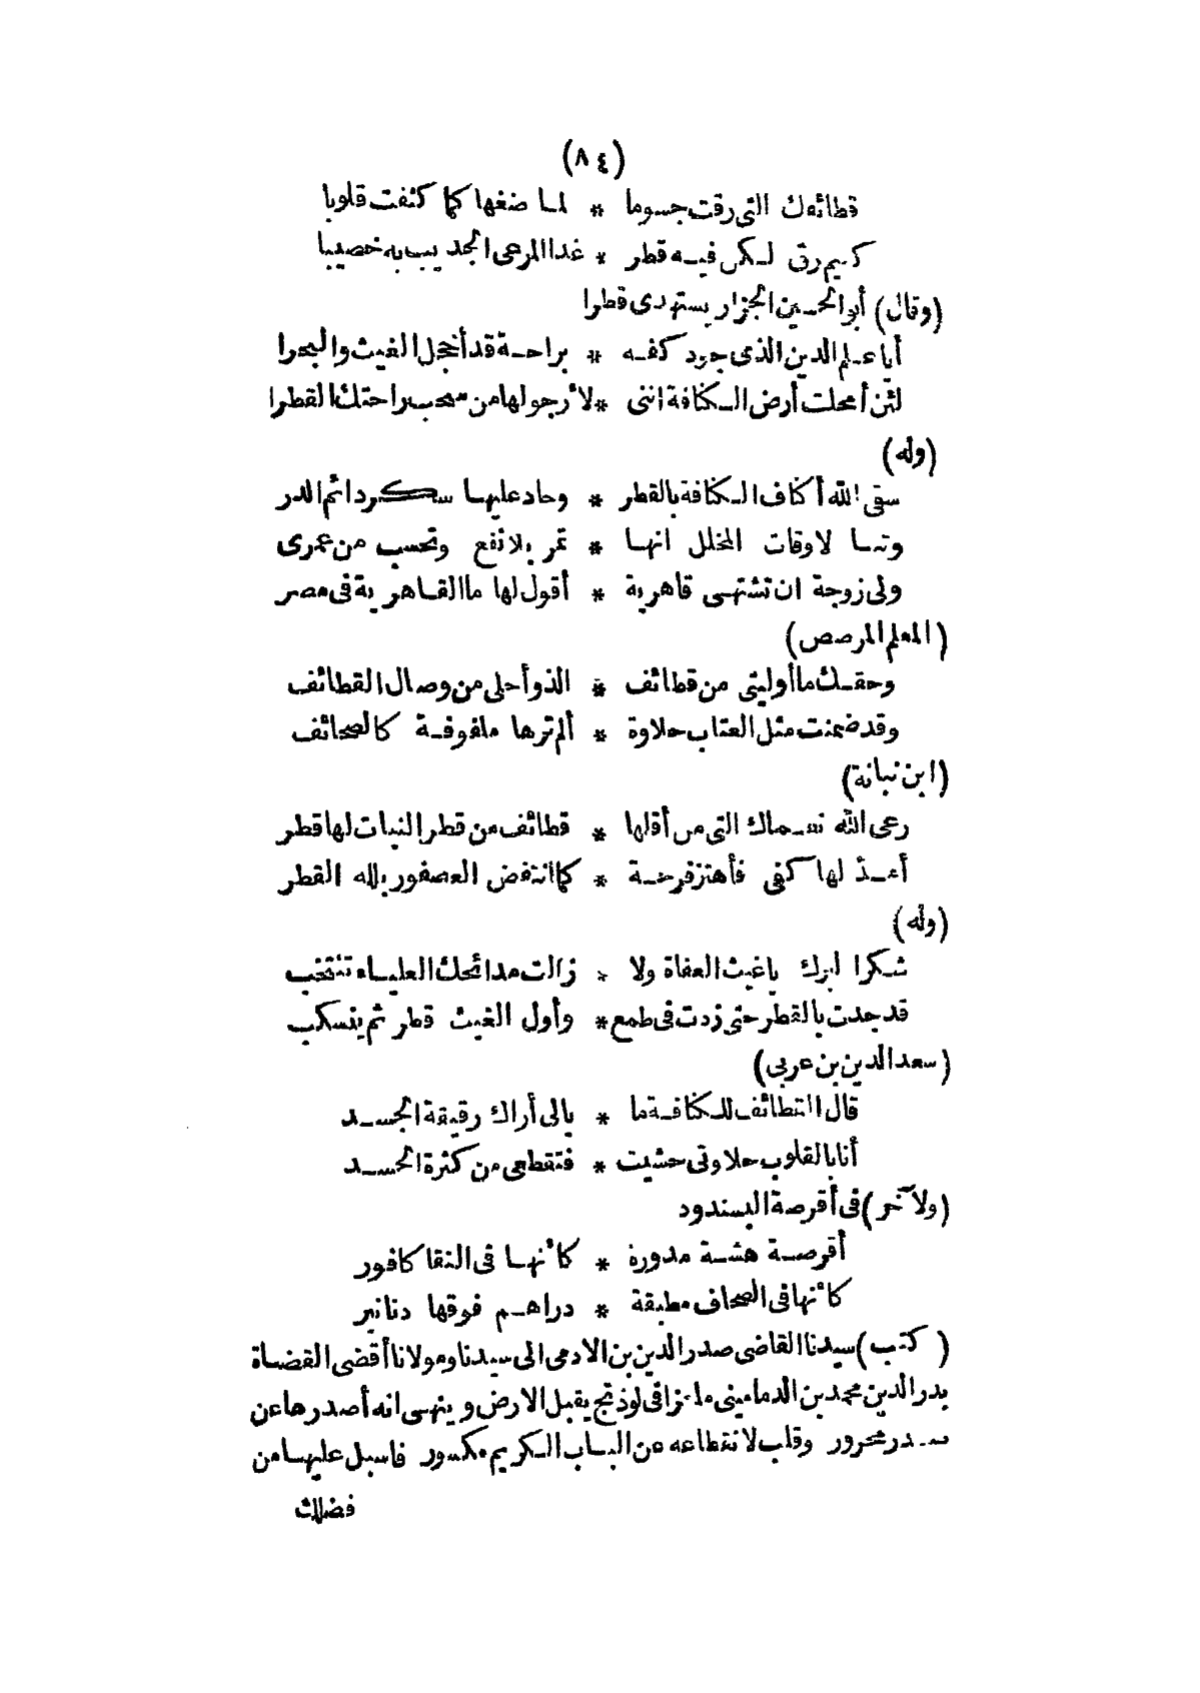 (٨٤)
قطائفك التى رقت جسوما * لماضغها كما كثفت قلوبا
كريم رق لكن فيه قطر * غدا المرعى الجديب به خصيبا
(وقال) أبو الحسين الجزار يستهدى قطرا
أيا علم الدين الذى جود كفه * براحة قد أخجل الغيث والبحرا
لئن أمحلت أرض الكنافة اننى * لأرجو لها من سحب راحتك القطرا
(وله)
سقى الله أكناف الكنافة بالقطر * وجاد عليها سكر دائم الدر
وتبا لاوقات المخلل انها * تمر بلا نفع وتحسب من عمرى
ولى زوجة ان تشتهى قاهرية * أقول لها ما القاهرية فى مصر
(المعلم المرصص)
وحقك ما أوليتنى من قطائف * الذ وأحلى من وصال القطائف
وقد ضمنت مثل العتاب حلاوة * ألم ترها ملفوفة كالصحائف
(ابن نباتة)
رعى الله نعماك التى من أقلها * قطائف من قطر النبات لها قطر
أمد لها كفى فأهتز فرحة * كما انتفض العصفور بلله القطر
(وله)
شكرا لبرك ياغيث العفاة ولا * زالت مدائحك العلياء تنتخب
قد جدت بالقطر حتى زدت فى طمع * وأول الغيث قطر ثم ينسكب
(سعد الدين بن عربى)
قال القطائف للكنافة ما * بالى أراك رقيقة الجسد
أنا بالقلوب حلاوتى حشيت * فتقطعى من كثرة الحسد
(ولآخر) فى أقرصة البسندود
أقرصة هشة مدورة * كأنها فى النقا كافور
كأنها فى الصحاف مطبقة * دراهم فوقها دنانير
(كتب) سيدنا القاضى صدر الدين بن الادمى الى سيدنا ومولانا أقضى القضاة
بدر الدين محمد بن الدمامينى ملغزا فى لوذنج يقبل الارض وينهى انه أصدرها عن
صدر محرور وقلب لانقطاعه عن الباب الكريم مكسور فاسبل عليها من
فضلك